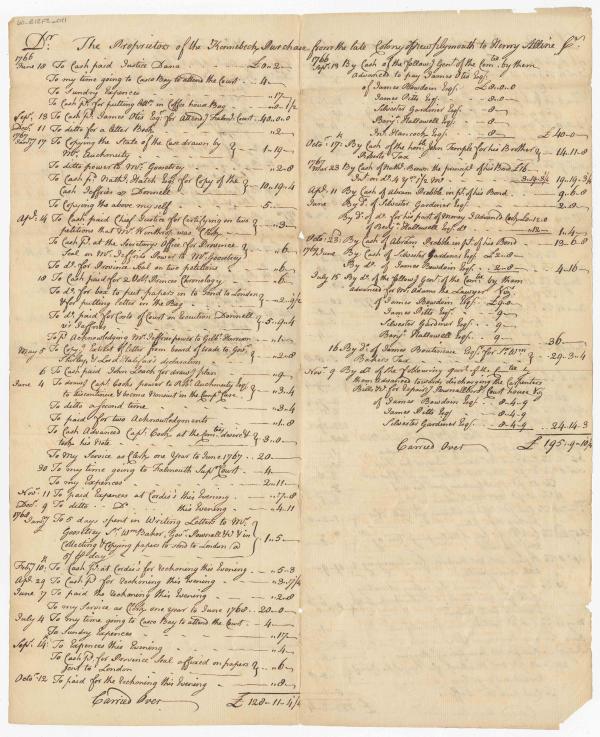 Dr. The Proprietors of the Kennebeck Purchase from the late Colony of New Plymouth to Henry Alline Cr.
1766
June 18 To Cash paid Justice Dana £0„2„
To my time going to Casco Bay to attend the Court 4
To Sundry Expences „17
To Cash pd. for putting in Coffee house Bag „0„1/2
Sept. 13 To Cash pd. James Otis Esqr. for Attend. Falmo. Court 40„0„0
Decr. 11 To ditto for a Letter Book „2
1767
Janry 17 To Copying the State of the Case drawn by Mr. Auchmuty 1„19
To ditto power to Mr. Goostrey „2„8
To Cash pd. Nathl. Hatch Esqr. for Copy of the Case Jeffries vs Donnell 10„19„4
To Copying the above my self 5
Apl. 14 To Cash paid Chief Justice for Certifying on two petitions that Mr. Winthrop was Clerk „3
To Cash pd. at the Secretarys Office for Province Seal on Mr. Jeffries Power to Mr. Goostrey „6
To do. for Province Seal on two petitions „6
18 To Cash paid for 2 Vols. Princes Chronology „6
To do. for box to put papers in to Send to London & for putting Letter in the Bag „2„9/2
To do. paid for Costs of Court on Execution Donnell vs Jeffries 5„9„4
To pd. Acknowledging Mr. Jeffries power to Gilbt. Harrison „1
May 5 To Copy Extract of letter from board of trade to Govr. Shirley, & Lord Halifax's declaration „2„8
6 To Cash paid John Leach for drawg. plan „9
June 4 To drawg. Capt. Cooks power to R. Auchmuty Esqr. to Discontinue & become Nonsuit in the Comps. Case „3„4
To ditto a Second time „3„4
To paid for two Acknowledgments „1„8
To Cash Advanced Capt. Cook, at the Comtees desire & took his Note 3„0
To My Service as Clerk one Year to June 1767 20
30 To my time going to Falmouth Supr. Court 4
To my Expences 2„11
Novr. 11 To paid Expences at Cordis's this Evening „7„8
Decr. 9 To ditto Do. this Evening 4„11
1768
Janry To 5 days spent in Writing Letters to Mr. Goostrey, Sr. Wm. Baker, Govr. Pownall &c & in Collecting & Copying papers to send to London @ 5/ P day 1„5
Feby 10 To Cash pd. at Cordis's for reckoning this Evening „5„3
Apl. 29 To Cash pd. for reckoning this Evening „3„7/2
June 7 To paid the reckoning this Evening „2„8
To my Service as Clerk one year to June 1768 20„0
July 4 To my time going to Casco Bay to attend the Court 4
To Sundry Expences „17
Sepr. 14 To Expences this Evening 4
To Cash pd. for Province Seal affixed on papers sent to London „6
Octor. 12 To paid for the reckoning this Evening „8
Carried Over £128„11„4/4
1766
Sept. 19 By Cash of the following Gent. of the Comtee. by them
advanced to pay James Otis Esqr.
of James Bowdoin Esqr. £8„0„0
James Pitts Esqr. 8
Silvester Gardiner Esqr. 8
Benja. Hallowell Esqr. 8
Jno. Hancock Esqr. 8 £40„0
Octor. 17 By Cash of the honl. John Temple for his Brother Roberts Tax 14„11„8
1767
Mar 23 By Cash of Nathl. Brown the principl. of his Bond £16
Int. on do. 3„19„3/4 19„19„3/4
Apl. 11 By Cash of Abram Prebble on pt. of his Bond 9„6„8
June By do. of Silvester Gardiner Esqr. 2„8
By do. of do. for his part of Money I advancd Cook £0„12„0
of Benja. Hallowell Esqr. do. „12 1„4
Octor. 23 By Cash of Abram Prebble on pt. of his Bond 13„6„8
June By Cash of Silvester Gardiner Esqr. £2„8
By Do. of James Bowdoin Esqr. 2„8 4„16
July 15 By Do. of the following Gent. of the Comtee. by them
advanced for Mr. Adams the Lawyer Vizt.
of James Bowdoin Esqr. £9„0
James Pitts Esqr. 9
Silvester Gardiner Esqr. 9
Benja. Hallowell Esqr. 9 36
16 By Do. of James Boutineau Esqr. for Sr. Wm. Bakers Tax 29„3„4
Novr. 9 By Do. of the following gent. of the Comtee by
them advanced towards discharging the Carpenters
Bills &c for Repairs of Pownalboro' Court house Vizt.
of James Bowdoin Esqr. 8„4„9
James Pitts Esqr. 8„4„9
Silvester Gardiner Esqr. 8„4„9 24„14„3
Carried Over £195„9„10/4